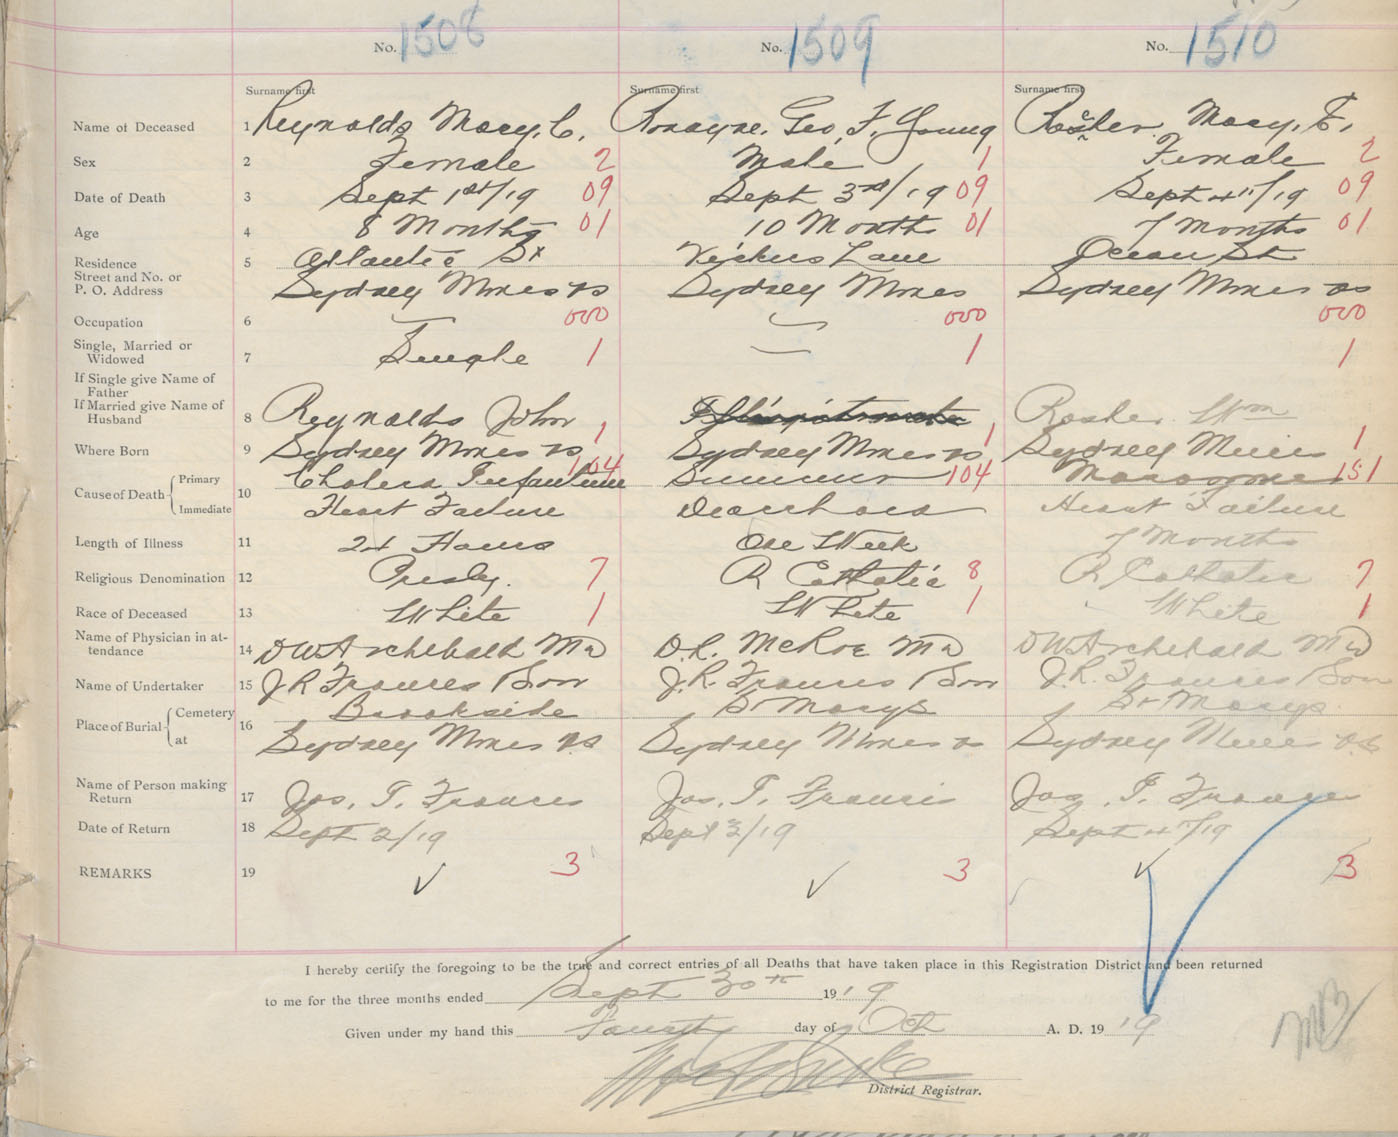 No. 1508 No. 1509 No. 1510
Surname first Surname first Surname first
Name of Deceased 1 Reynolds Mary. C. Ronayne. Geo. F. Young Rosher Mary. E.
Sex 2 Female 2 Male 1 Female 2
Date of Death 3 Sept 1st/19 09 Sept 3rd/19 09 Sept 4th/19 09
Age 4 8 Months 01 10 Months 01 7 Months 01
Residence 5 Atlantic St Vickers Lane Ocean St
Street and No. or
P. O. Address Sydney Mines NS Sydney Mines Sydney Mines NS
Occupation 6 000 000 000
Single, Married or
Widowed 7 Single 1 1 1
If Single give Name of
Father
If Married give Name of
Husband 8 Reynolds John 1 1 Rosher. Wm 1
Where Born 9 Sydney Mines NS Sydney Mines NS Sydney Mines
Cause of Death Primary 10 Cholera Infantum 104 Summer 104 151
Immediate Heart Failure Diarrhoea Heart Failure
Length of Illness 11 24 Hours One Week 7 Months
Religious Denomination 12 Presby. 7 R Catholic 8 R Catholic 7
Race of Deceased 13 White 1 White 1 White 1
Name of Physician in at-
tendance 14 DW Archibald MD D.R. McRae MD DW Archibald MD
Name of Undertaker 15 J R Francis Son J. R. Francis Son J. R. Francis Son
Place of Burial Cemetery 16 Brookside St Marys St Marys
at Sydney Mines NS Sydney Mines NS Sydney Mines NS
Name of Person making
Return 17 Jos. T. Francis Jos. T. Francis Jos. T. Francis
Date of Return 18 Sept 2/19 Sept 3/19 Sept 4th/19
REMARKS 19 3 3 3
I hereby certify the foregoing to be the true and correct entries of all Deaths that have taken place in this Registration District and been returned
to me for the three months ended Sept 30th 19 19
Given under my hand this Fourth day of Oct A. D. 19 19
District Registrar.
MB